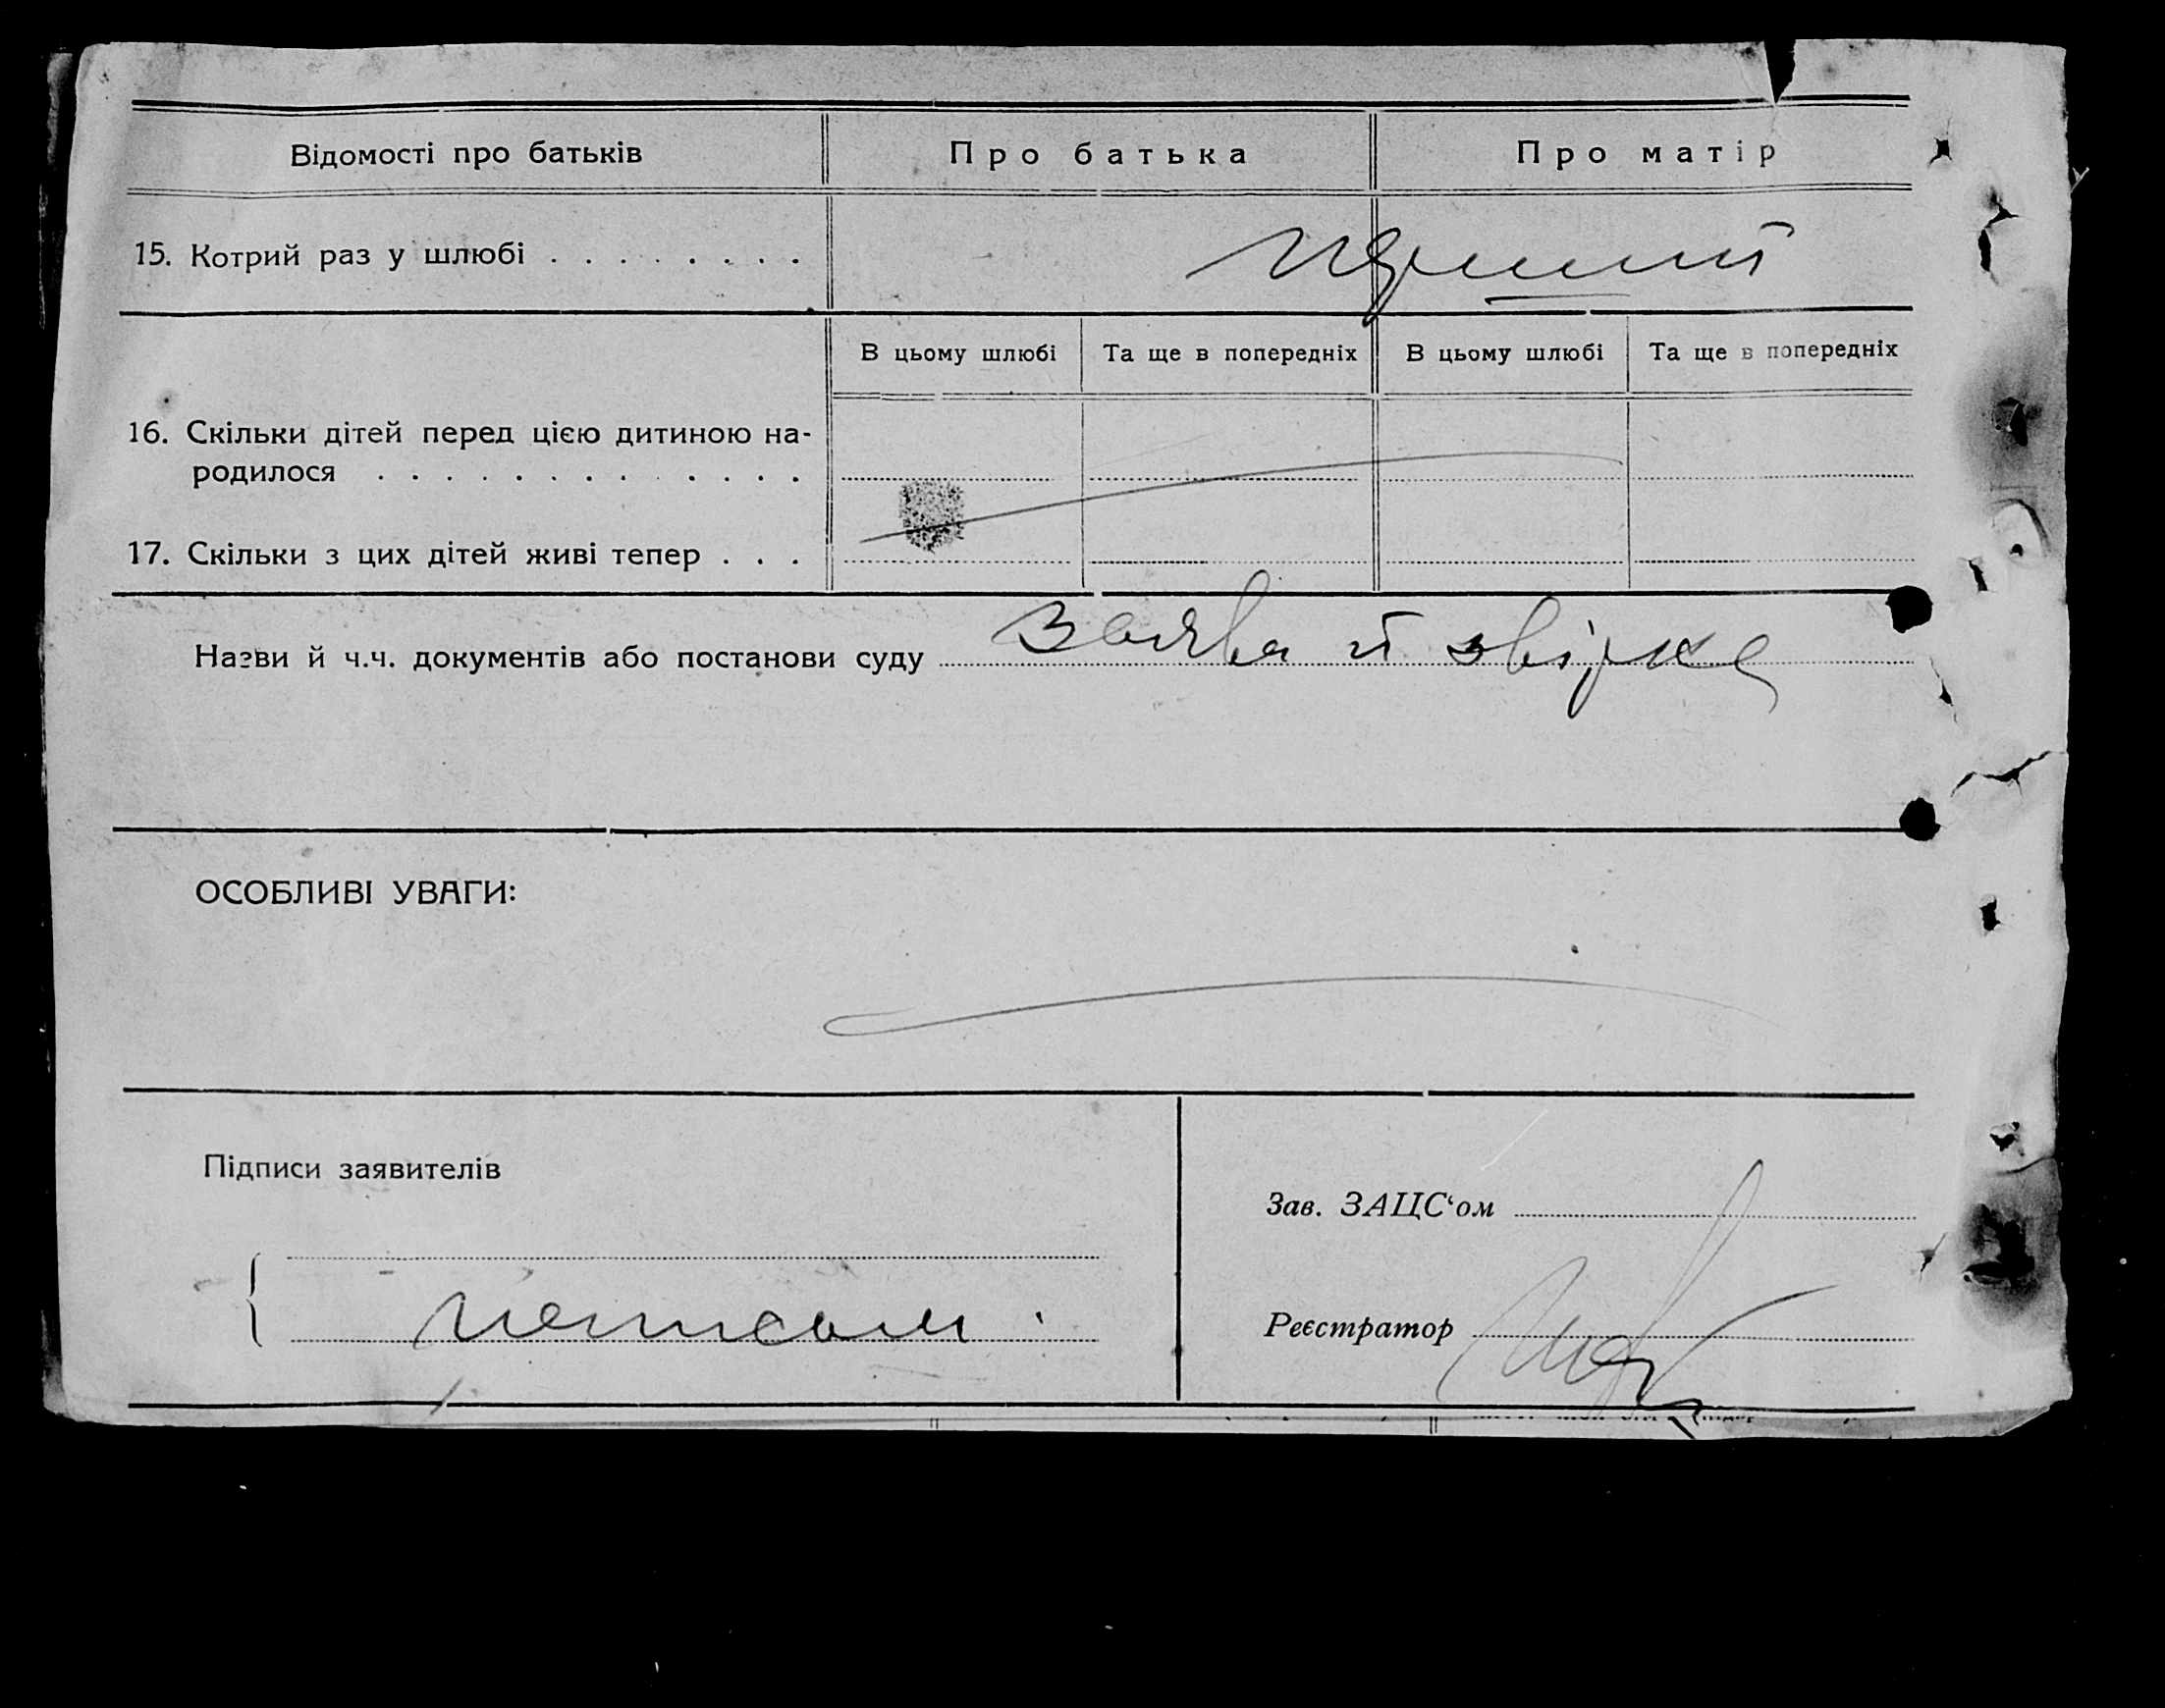 Відомості про батьків Про батька Про матір
15. Котрий раз у шлюбі . . . . . . . . перший
В цьому шлюбі Та ще в попередніх В цьому шлюбі Та ще в попередніх
16. Скільки дітей перед цією дитиною на-
родилося . . . . . . . . . . . . .
17. Скільки з цих дітей живі тепер . . .
Назви й ч.ч. документів або постанови суду заява й звірка
ОСОБЛИВІ УВАГИ:
Підписи заявителів
Зав. ЗАЦС‘ом
Реєстратор